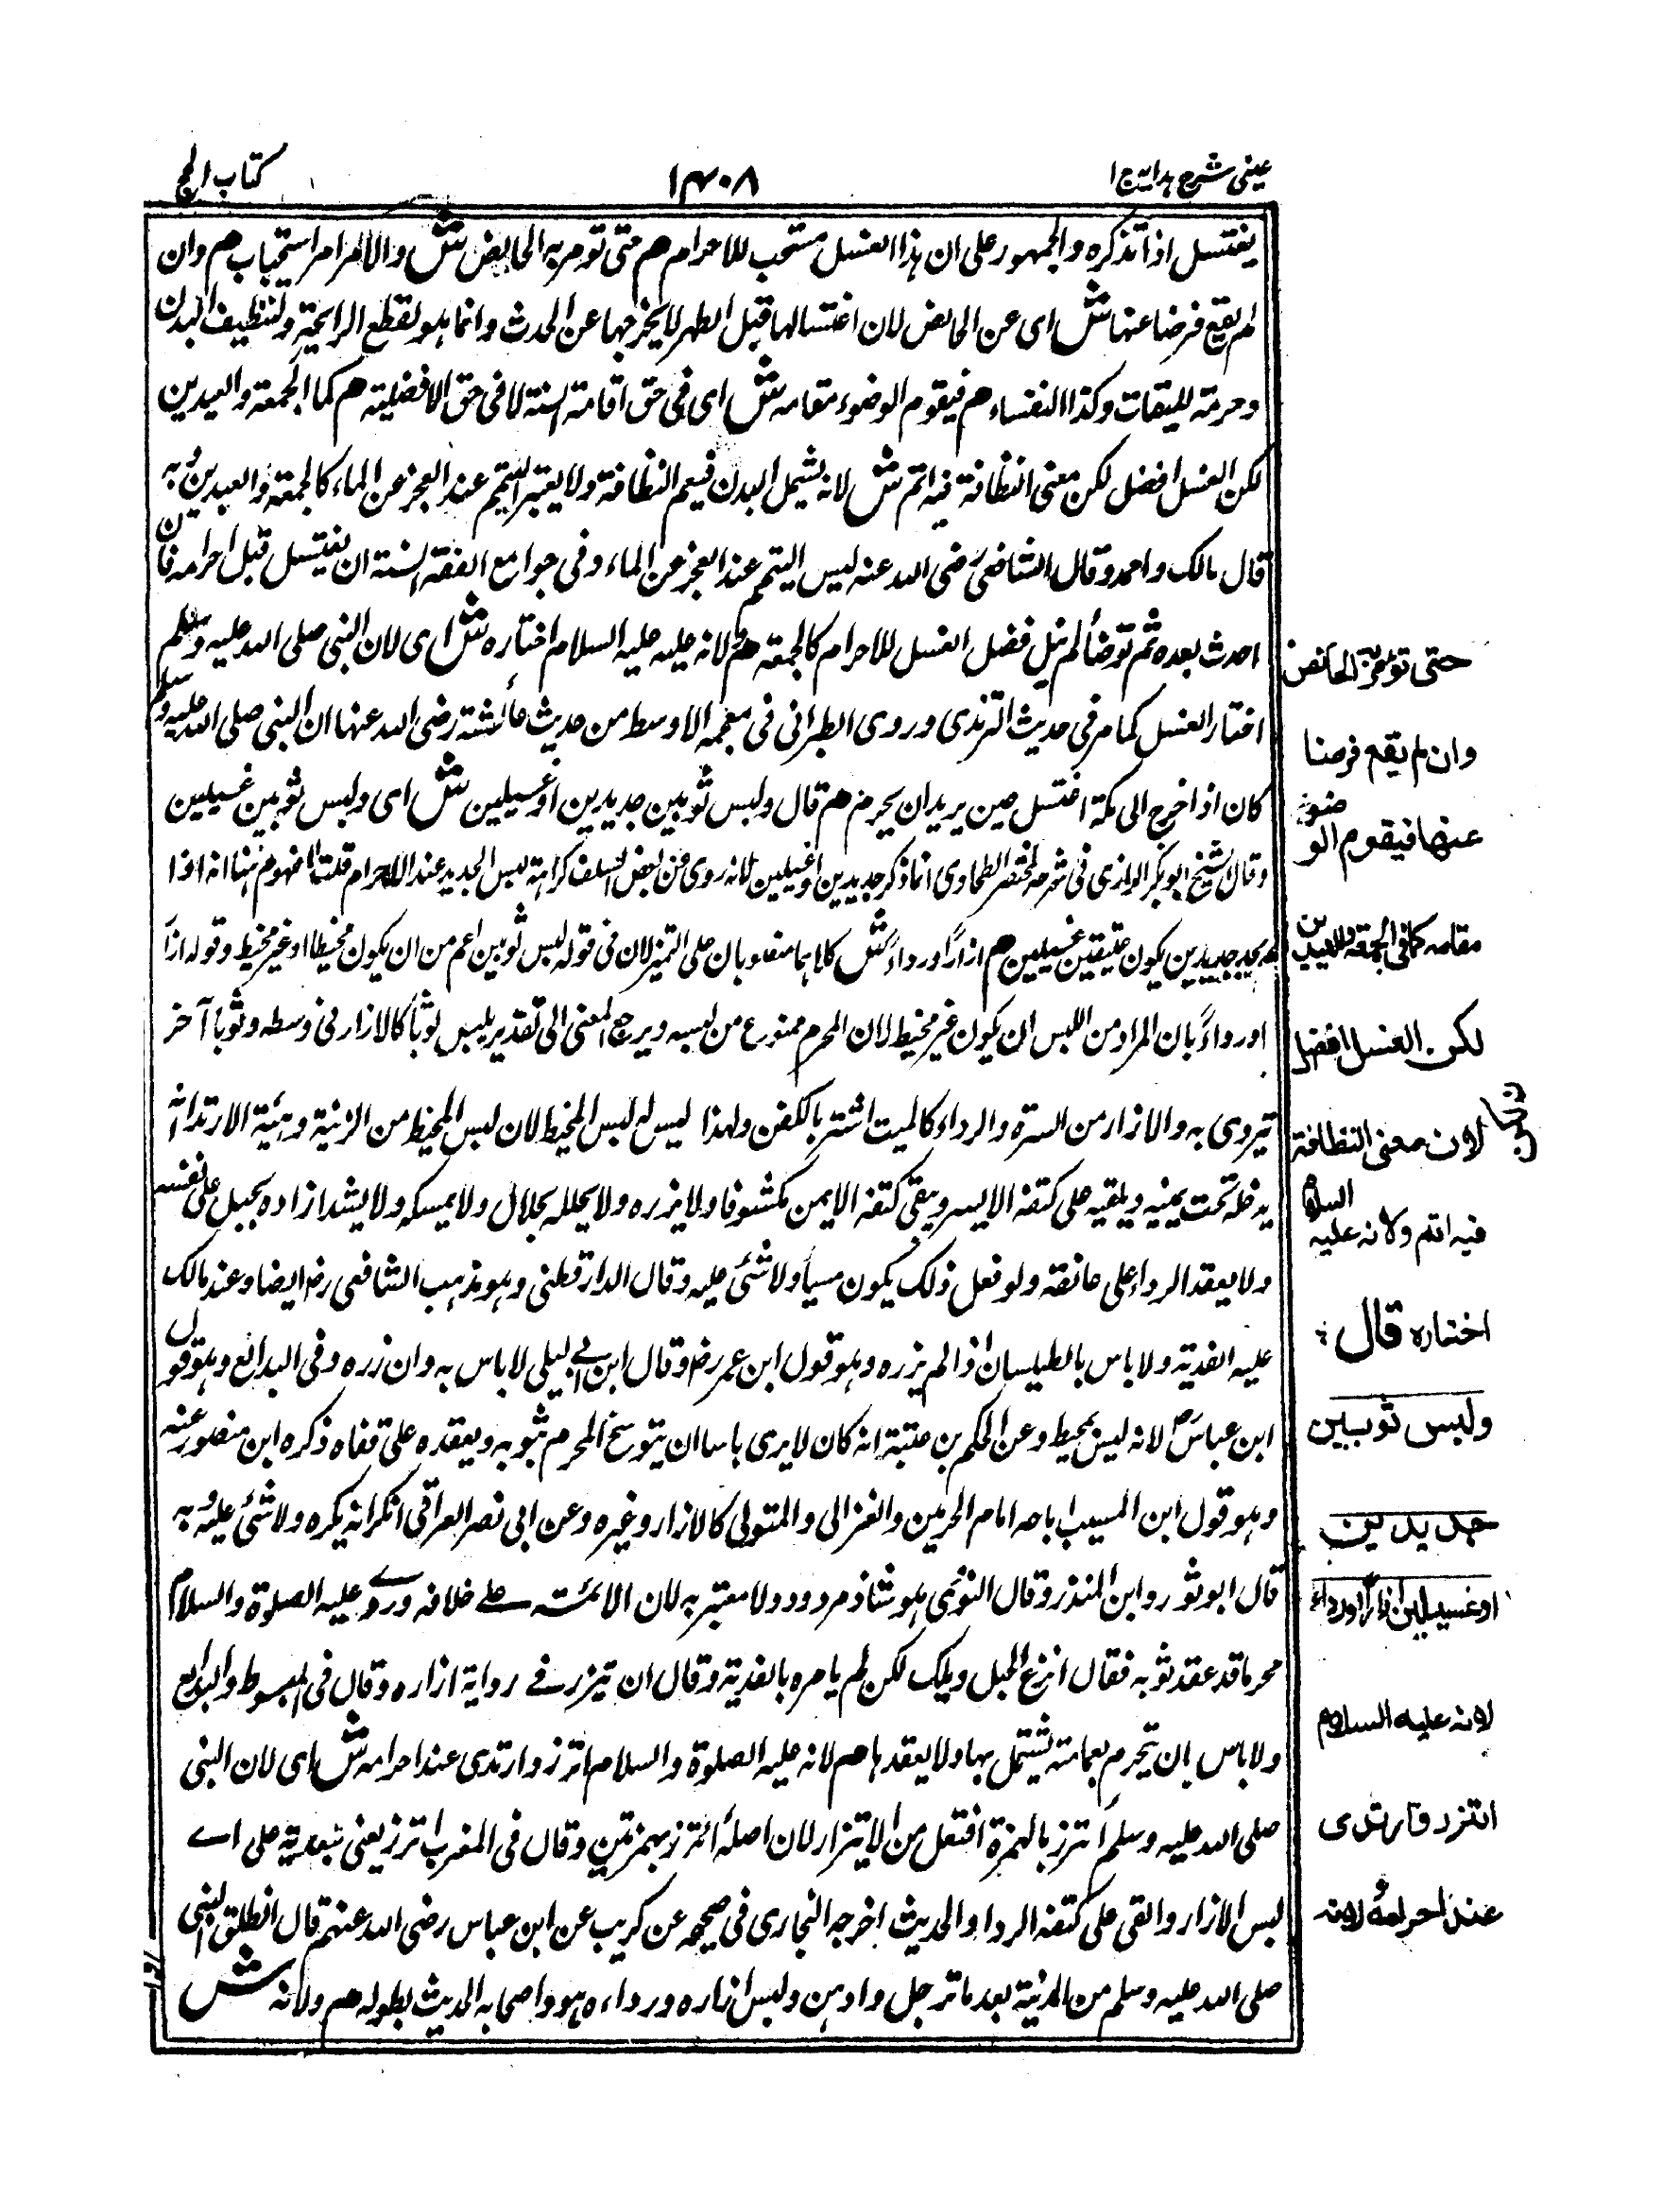 عینی شرح ہدایہ ج ۱
۱۴۰۸
کتاب الحج
یغتسل اذا تذکرہ والجمہور علی ان ہذا الغسل مستحب للاحرام ھم حتی تومر بہ الحایض ش والامر امر استحباب ھم وان
لم یقع فرضا عنہا ش ای عن الحایض لان اغتسالہا قبل الطہر لا یخرجہا عن الحدث وانما ہو لقطع الرایحۃ ولتنظیف البدن
وحرمۃ للمیقات وکذا النفساء ھم فیقوم الوضوء مقامہ ش ای فی حق اقامۃ السنۃ لا فی حق الافضلیتہ ھم کما الجمعۃ والعیدین
لکن الغسل افضل لکن معنی النظافۃ فیہ اتم ش لانہ یشمل البدن فیعم النظافۃ ولا یعتبر التیمم عند العجز عن الماء کالجمعۃ والعیدین وبہ
قال مالک واحمد وقال الشافعی رضی اللہ عنہ لیس التیمم عند العجز عن الماء وفی جوامع الفقہ السنۃ ان یغتسل قبل احرامہ فان
احدث بعدہ ثم توضأ لم ینل فضل الغسل للاحرام کالجمعۃ ھم ولانہ علیہ علیہ السلام اختارہ ش ای لان النبی صلی اللہ علیہ وسلم
اختار الغسل کما مر فی حدیث الترمذی وروی الطبرانی فی معجمہ الاوسط من حدیث عائشۃ رضی اللہ عنہا ان النبی صلی اللہ علیہ وسلم
کان اذا خرج الی مکۃ اغتسل حین یرید ان یحرم ھم قال ولبس ثوبین جدیدین او غسیلین ش ای ولبس ثوبین غسیلین
وقال الشیخ ابو بکر الرازی فی شرحہ لمختصر الطحاوی انما ذکر جدیدین او غسیلین لانہ روی عن بعض السلف کراہۃ لبس الجدید عند الاحرام قلت المفہوم ہنا انہ اذا
لم یجد جدیدین یکون عتیقین غسیلین ھم ازارا ورداء ش کلاہما منصوبان علی التمیز لان فی قولہ لبس ثوبین اعم من ان یکون مخیطا او غیر مخیط وقولہ ازارا
او رداءً بان المراد من اللبس ان یکون غیر مخیط لان المحرم ممنوع من لبسہ ویرجع المعنی الی تقدیر یلبس ثوباً کالازار فی وسطہ وثوبا آخر
تیروی بہ والازار من السترہ والرداء کالمیت اشتر بالکفن ولہذا لیس لہ لبس المخیط لان لبس المخیط من الزنیۃ وہیئۃ الارتداء انہ
یدخلہ تحت یمینہ ویلقیہ علی کتفہ الایسر ویبقی کتفہ الایمن مکشوفا ولا یزرہ ولا یخللہ بخلال ولا یمسکہ ولا یشد ازارہ بحبل علی نفسہ
ولا یعقد الرداء علی عاتقہ ولو فعل ذلک یکون مسیأ ولا شئی علیہ وقال الدارقطنی وہو مذہب الشافعی رضہ ایضا وعند مالک
علیہ الفدیۃ ولا باس بالطیلسان اذا لم یزرہ وہو قول ابن عمر رضہ وقال ابن ابی لیلی لا باس بہ وان زرہ وفی البدائع وہو قول
ابن عباس رض لانہ لیس بمخیط وعن الحکم بن عتبۃ انہ کان لا یری باسا ان یتوسخ المحرم بثوبہ ویعقدہ علی قفاہ ذکرہ ابن منصور عنہ
وہو قول ابن المسیب اباحہ امام الحرمین والغزالی والمتولی کالازار وغیرہ وعن ابی نصر العراقی انکر انہ یکرہ ولا شئی علیہ وبہ
قال ابو ثور وابن المنذر وقال النووی ہو شاذ مردود ولا معتبر بہ لان الائمۃ علے خلافہ ورے علیہ الصلوۃ والسلام
محرما قد عقد ثوبہ فقال انزع الحبل ویلک لکن لم یامرہ بالفدیۃ وقال ان تیزر فے روایۃ ازارہ وقال فی المبسوط والبدایع
ولا باس بان یتحرم بعمامتہ یشتمل بہا ولا یعقدہا ھم لانہ علیہ الصلوۃ والسلام اتزر وارتدی عند احرامہ ش ای لان النبی
صلی اللہ علیہ وسلم اتزر بالہمزۃ افتعل من الایتزار لان اصلہ ائتزر بہمزتین وقال فی المغرب اتزر یعنی بتعدیۃ علی اے
لبس الازار والقی علی کتفہ الردا والحدیث اخرجہ البخاری فی صحیحہ عن کریب عن ابن عباس رضی اللہ عنہم قال انطلق النبی
صلی اللہ علیہ وسلم من المدنیۃ بعد ما ترجل وادہن ولبس ازارہ ورداءہ ہو واصحابہ الحدیث بطولہ ھم ولانہ ش
حتی تؤمر بہ الحائض
وان لم یقع فرضا
عنھا فیقوم الوضوء
مقامہ کما فی الجمعۃ والعیدین
لکن الغسل افضل
لان معنی النظافۃ
فیہ اتم ولانہ علیہ السلام
اختارہ قال
ولبس ثوبین
جدیدین
او غسیلین ازارا ورداء
لانہ علیہ السلام
اتزر وارتدی
عند احرامہ ولانہ